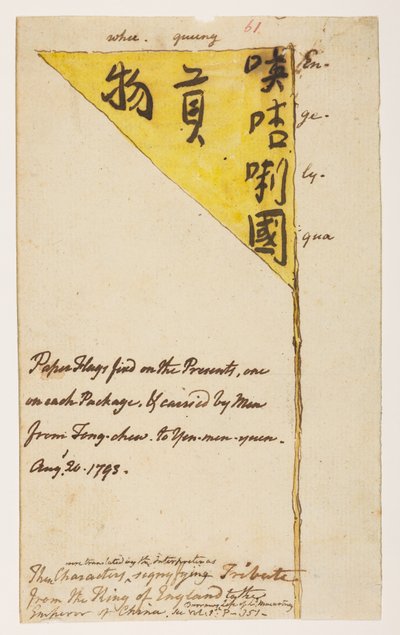 whu. quung 61
𠸄咭唎國
貢
物
En-
ge-
ly-
qua
Paper Flags fixd on the Presents, one
on each Package, & carried by Men
from Tong-chew. to Yen-men-yuen.
Augt. 20. 1793.
were translated by the Interpreter as
These Characters, signifying Tribute
from the King of England to the
Emperor of China. See Vol.